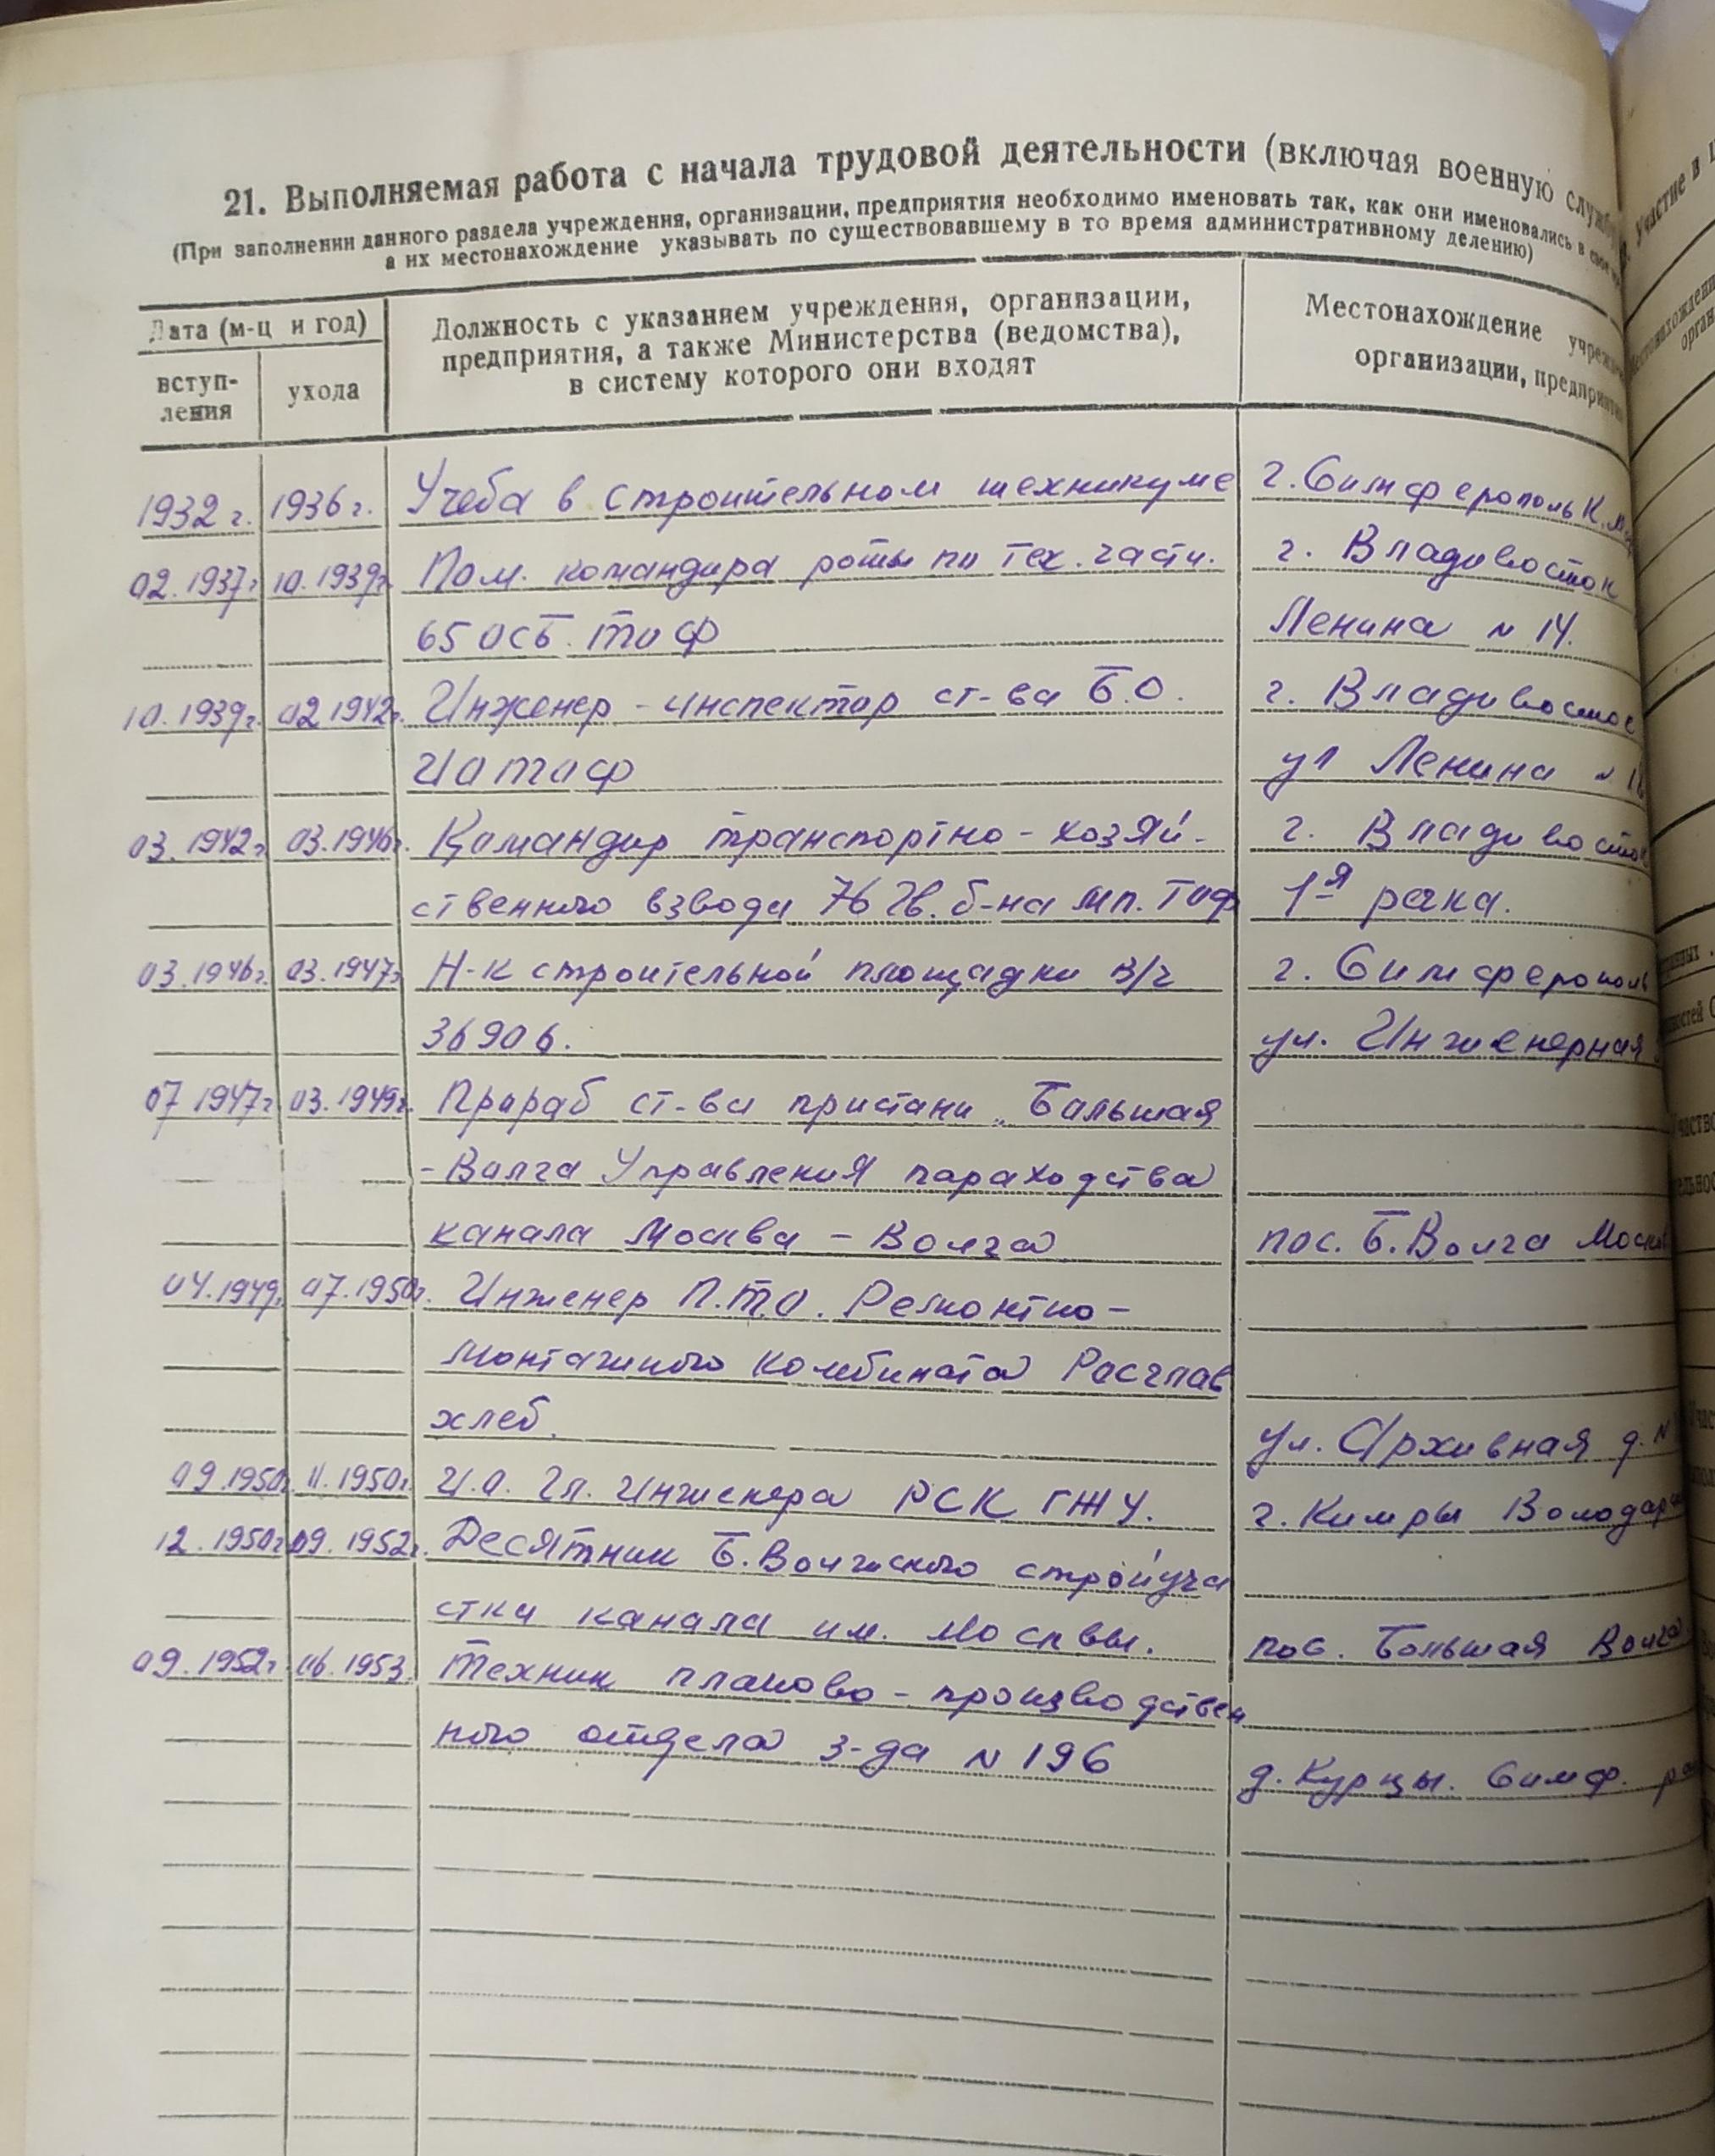 21. Выполняемая работа с начала трудовой деятельности (включая военную службу
(При заполнении данного раздела учреждения, организации, предприятия необходимо именовать так, как они именовались в свое
а их местонахождение указывать по существовавшему в то время административному делению)
Дата (м-ц и год)
вступ-
ления
ухода
Должность с указанием учреждения, организации,
предприятия, а также Министерства (ведомства),
в систему которого они входят
Местонахождение
организации,
1932 г. 1936 г. Учеба в строительном техникуме г. Симферополь К.
02.1937г 10.1939г. Пом. командира роты по тех. части. г. Владивосток
65 осб. тоф Ленина № 14.
10.1939г. 02 1942г. Инженер - инспектор ст-ва Б.О. г. Владивосток
тоф ул Ленина №
03.1942г. 03.1946г. Командир транспортно - хозяй- г. Владивосток
ственного взвода 76 б-на мп. Тоф 1-я речка.
03.1946г. 03.1947г. Н-к строительной площадки в/ч г. Симферополь
36906. ул. Инженерная
07 1947г 03.1949г. Прораб ст-ва пристани „Большая
-Волга Управления пароходства
канала Москва - Волга пос. Б.Волга
04.1949г. 07.1950г. Инженер П.т.о. Ремонтно-
монтажного комбината Росглав
хлеб. ул. Архивная д. №
09.1950г. 11.1950г. И.О. Гл. Инженера РСК ГЖУ. г. Кимры
12.1950г. 09.1952г. Десятник Б.Волжского стройуча
стка канала им. Москвы. пос. Большая Волга
09.1952г. 06.1953. Техник планово - производствен
ного отдела з-да № 196 д. Курцы. Симф.
Участие в